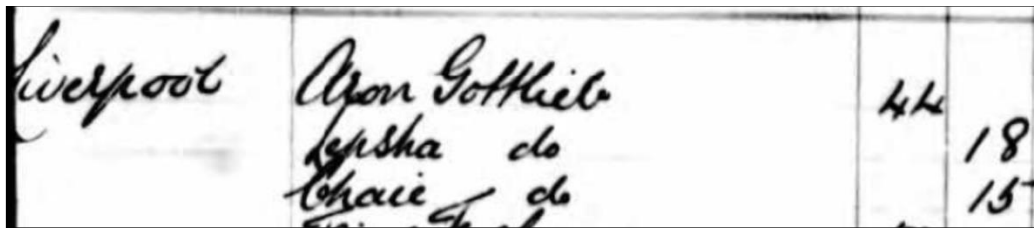 Liverpool Aron Gottlieb 44
do 18
Chaie do 15